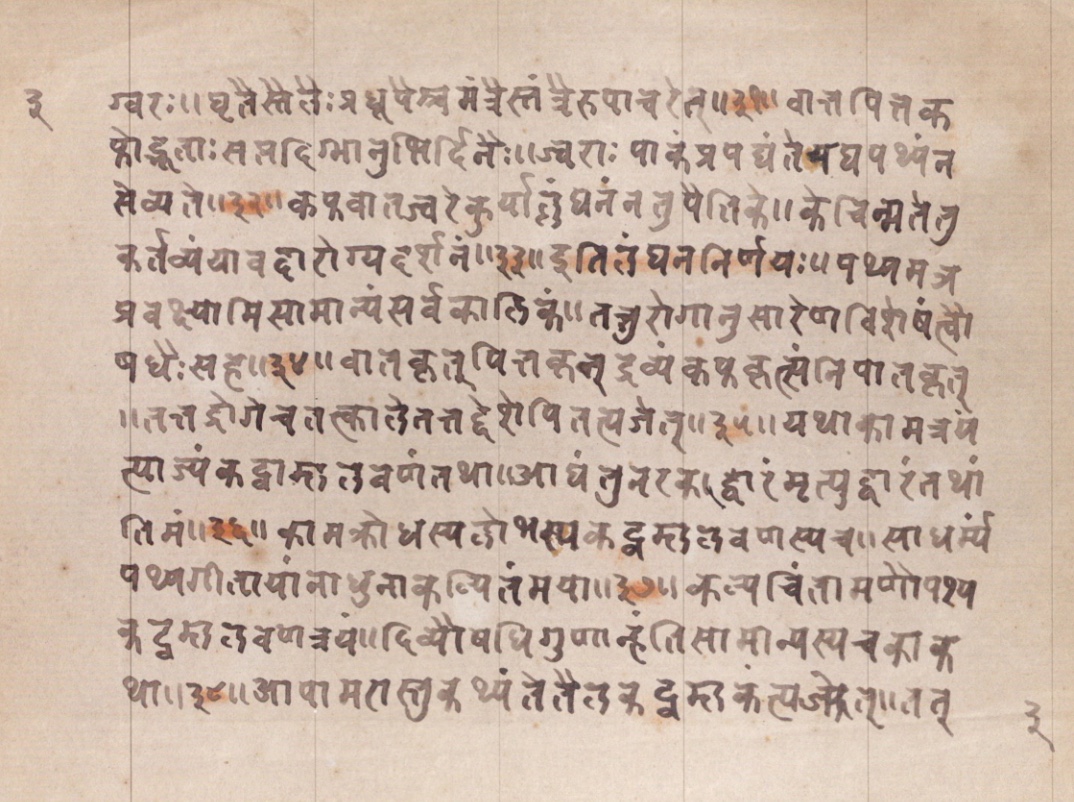 ३ ग्वरः॥ घृतैस्तैलैः प्रधूपैश्च मंत्रैस्तंत्रैरुपाचरेत्॥३१॥ वातपित्तक
फोद्भूताः सप्तदिग्भानुभिर्दिनैः॥ ज्वराः पाकं प्रपद्यंते यद्यपथ्यं न
सेव्यते॥३२॥ कफवातज्वरे कुर्याल्लंघनं न तु पैत्तिके॥ केचिन्मते तु
कर्तव्यं यावदारोग्यदर्शनं॥३३॥ इति लंघननिर्णयः॥ पथ्यमत्र
प्रवक्ष्यामि सामान्यं सर्वकालिकं॥ तत्तुरोगानुसारेण विशेषंत्वौ
षधैः सह॥३४॥ वातकृत् पित्तकृत् द्रव्यं कफकृत्संनिपातकृत्
॥तत्तद्रोगे च तत्काले तत्तद्देशेपि तत्यजेत्॥३५॥ यथा कामत्रयं
त्याज्यं कद्वाम्ललवणं तथा॥ आद्यं तु नरकद्वारं मृत्युद्वारं तथां
तिमं॥३६॥ कामक्रोधस्य लोभस्य कद्वम्ललवणस्य च॥ साधर्म्यं
पथ्यगीतायां नाधुना कल्पितं मया॥३७॥ कल्पचिंतामणौ पश्य
कद्वम्ललवणत्रयं॥ दिव्यौषधिगुणान्हंति सामान्यस्य च का क
था॥३८॥ आपामरास्तु कथ्यंते तैलकद्वम्लकं त्यजेत्॥ तत्
३